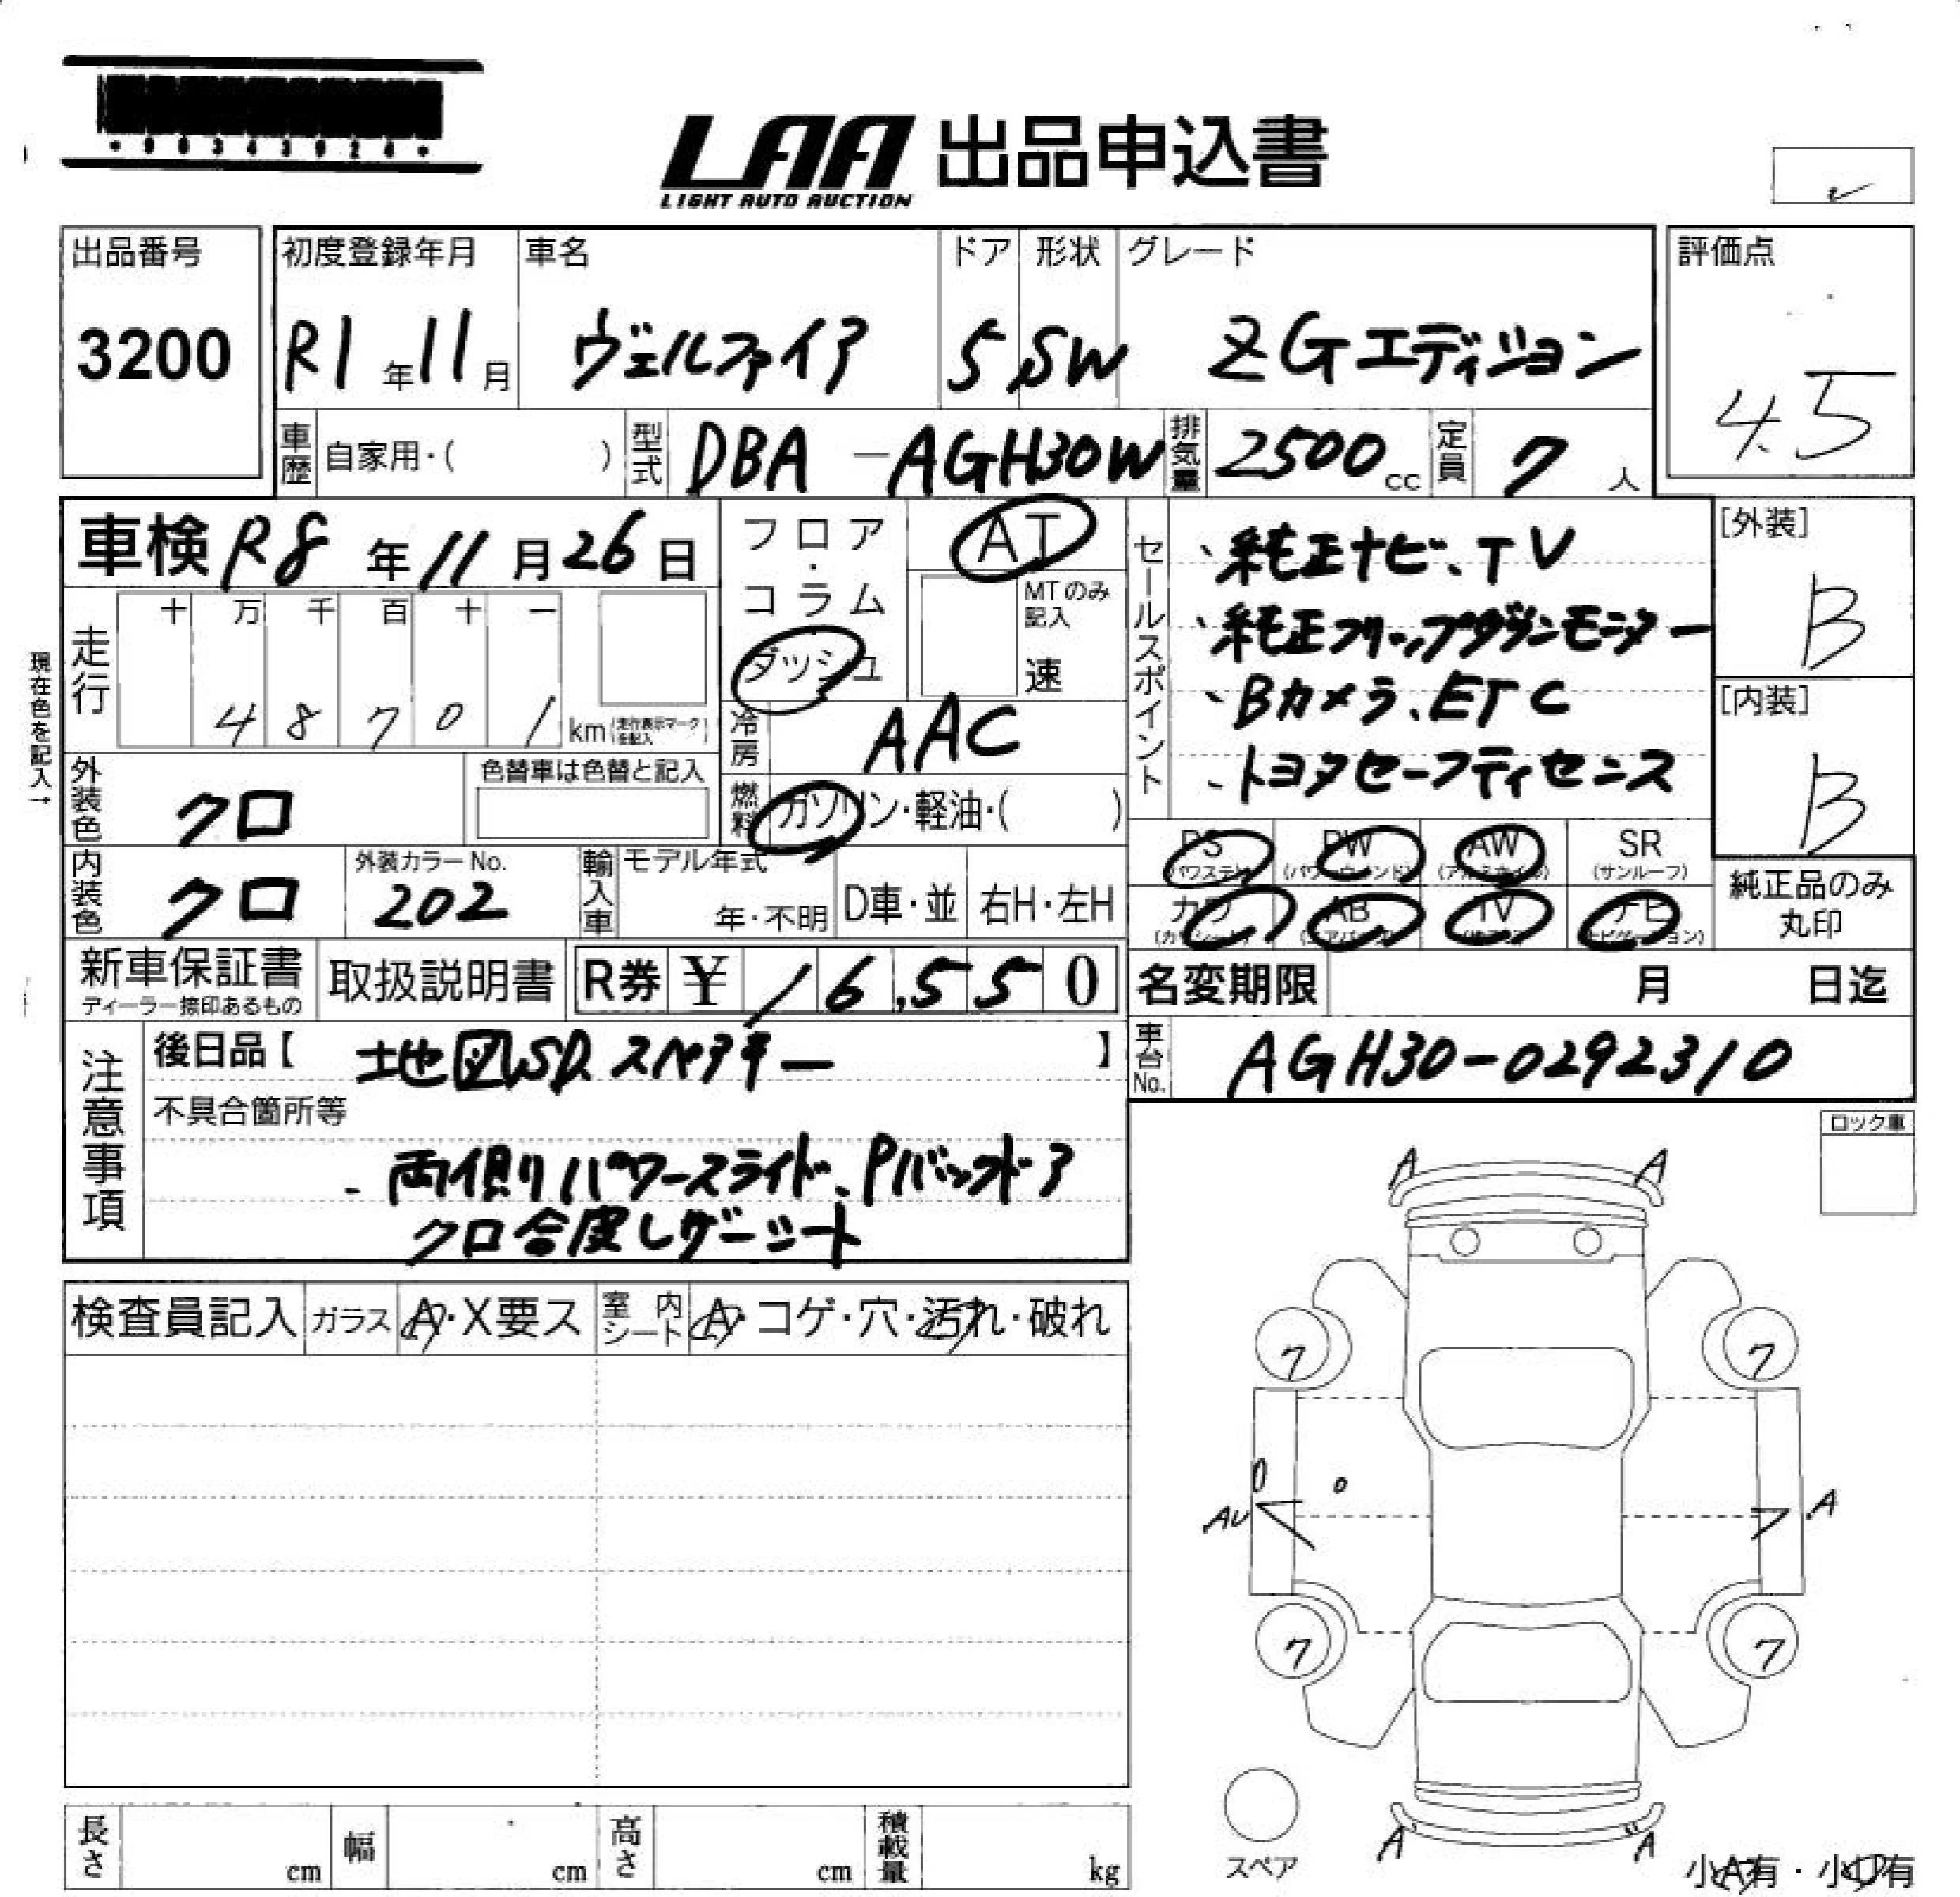 ・00343024・
LAA 出品申込書
LIGHT AUTO AUCTION
出品番号
3200
初度登録年月
R1年11月
車名
ヴェルファイア
ドア
5
形状
SW
グレード
ZGエディション
評価点
4.5
車歴 自家用・( )
型式 DBA-AGH30W
排気量 2500cc
定員 7人
車検 R8年11月26日
フロア・コラム・ダッシュ
AT
MTのみ記入
速
セールスポイント
、純正ナビ、TV
、純正フリップダウンモニター
、Bカメラ、ETC
、トヨタセーフティセンス
[外装]
B
[内装]
B
現在色を記入→
走行
十 万 千 百 十 一
4 8 7 0 1 km (走行表示マークを記入)
冷房 AAC
外装色 クロ
色替車は色替と記入
燃料 ガソリン・軽油・( )
内装色 クロ
外装カラーNo.
202
輸入車
モデル年式
年・不明
D車・並
右H・左H
PS (パワステ)
PW (パワーウィンド)
AW (アルミホイル)
SR (サンルーフ)
カワ (カワシート)
AB (エアバッグ)
TV
ナビ (ナビゲーション)
純正品のみ
丸印
新車保証書
ディーラー捺印あるもの
取扱説明書
R券 ¥16,550
名変期限 月 日迄
車台No. AGH30-0292310
注意事項
後日品【 地図SD.スペアキー 】
不具合箇所等
- 両側パワースライド、Pバックドア
クロ合皮レザーシート
ロック車
検査員記入
ガラス A・X要ス
室内シート A・コゲ・穴・汚れ・破れ
A A
7 7
0 0
AU A
7 7
スペア
A A
小A有・小U有
長さ cm
幅 cm
高さ cm
積載量 kg